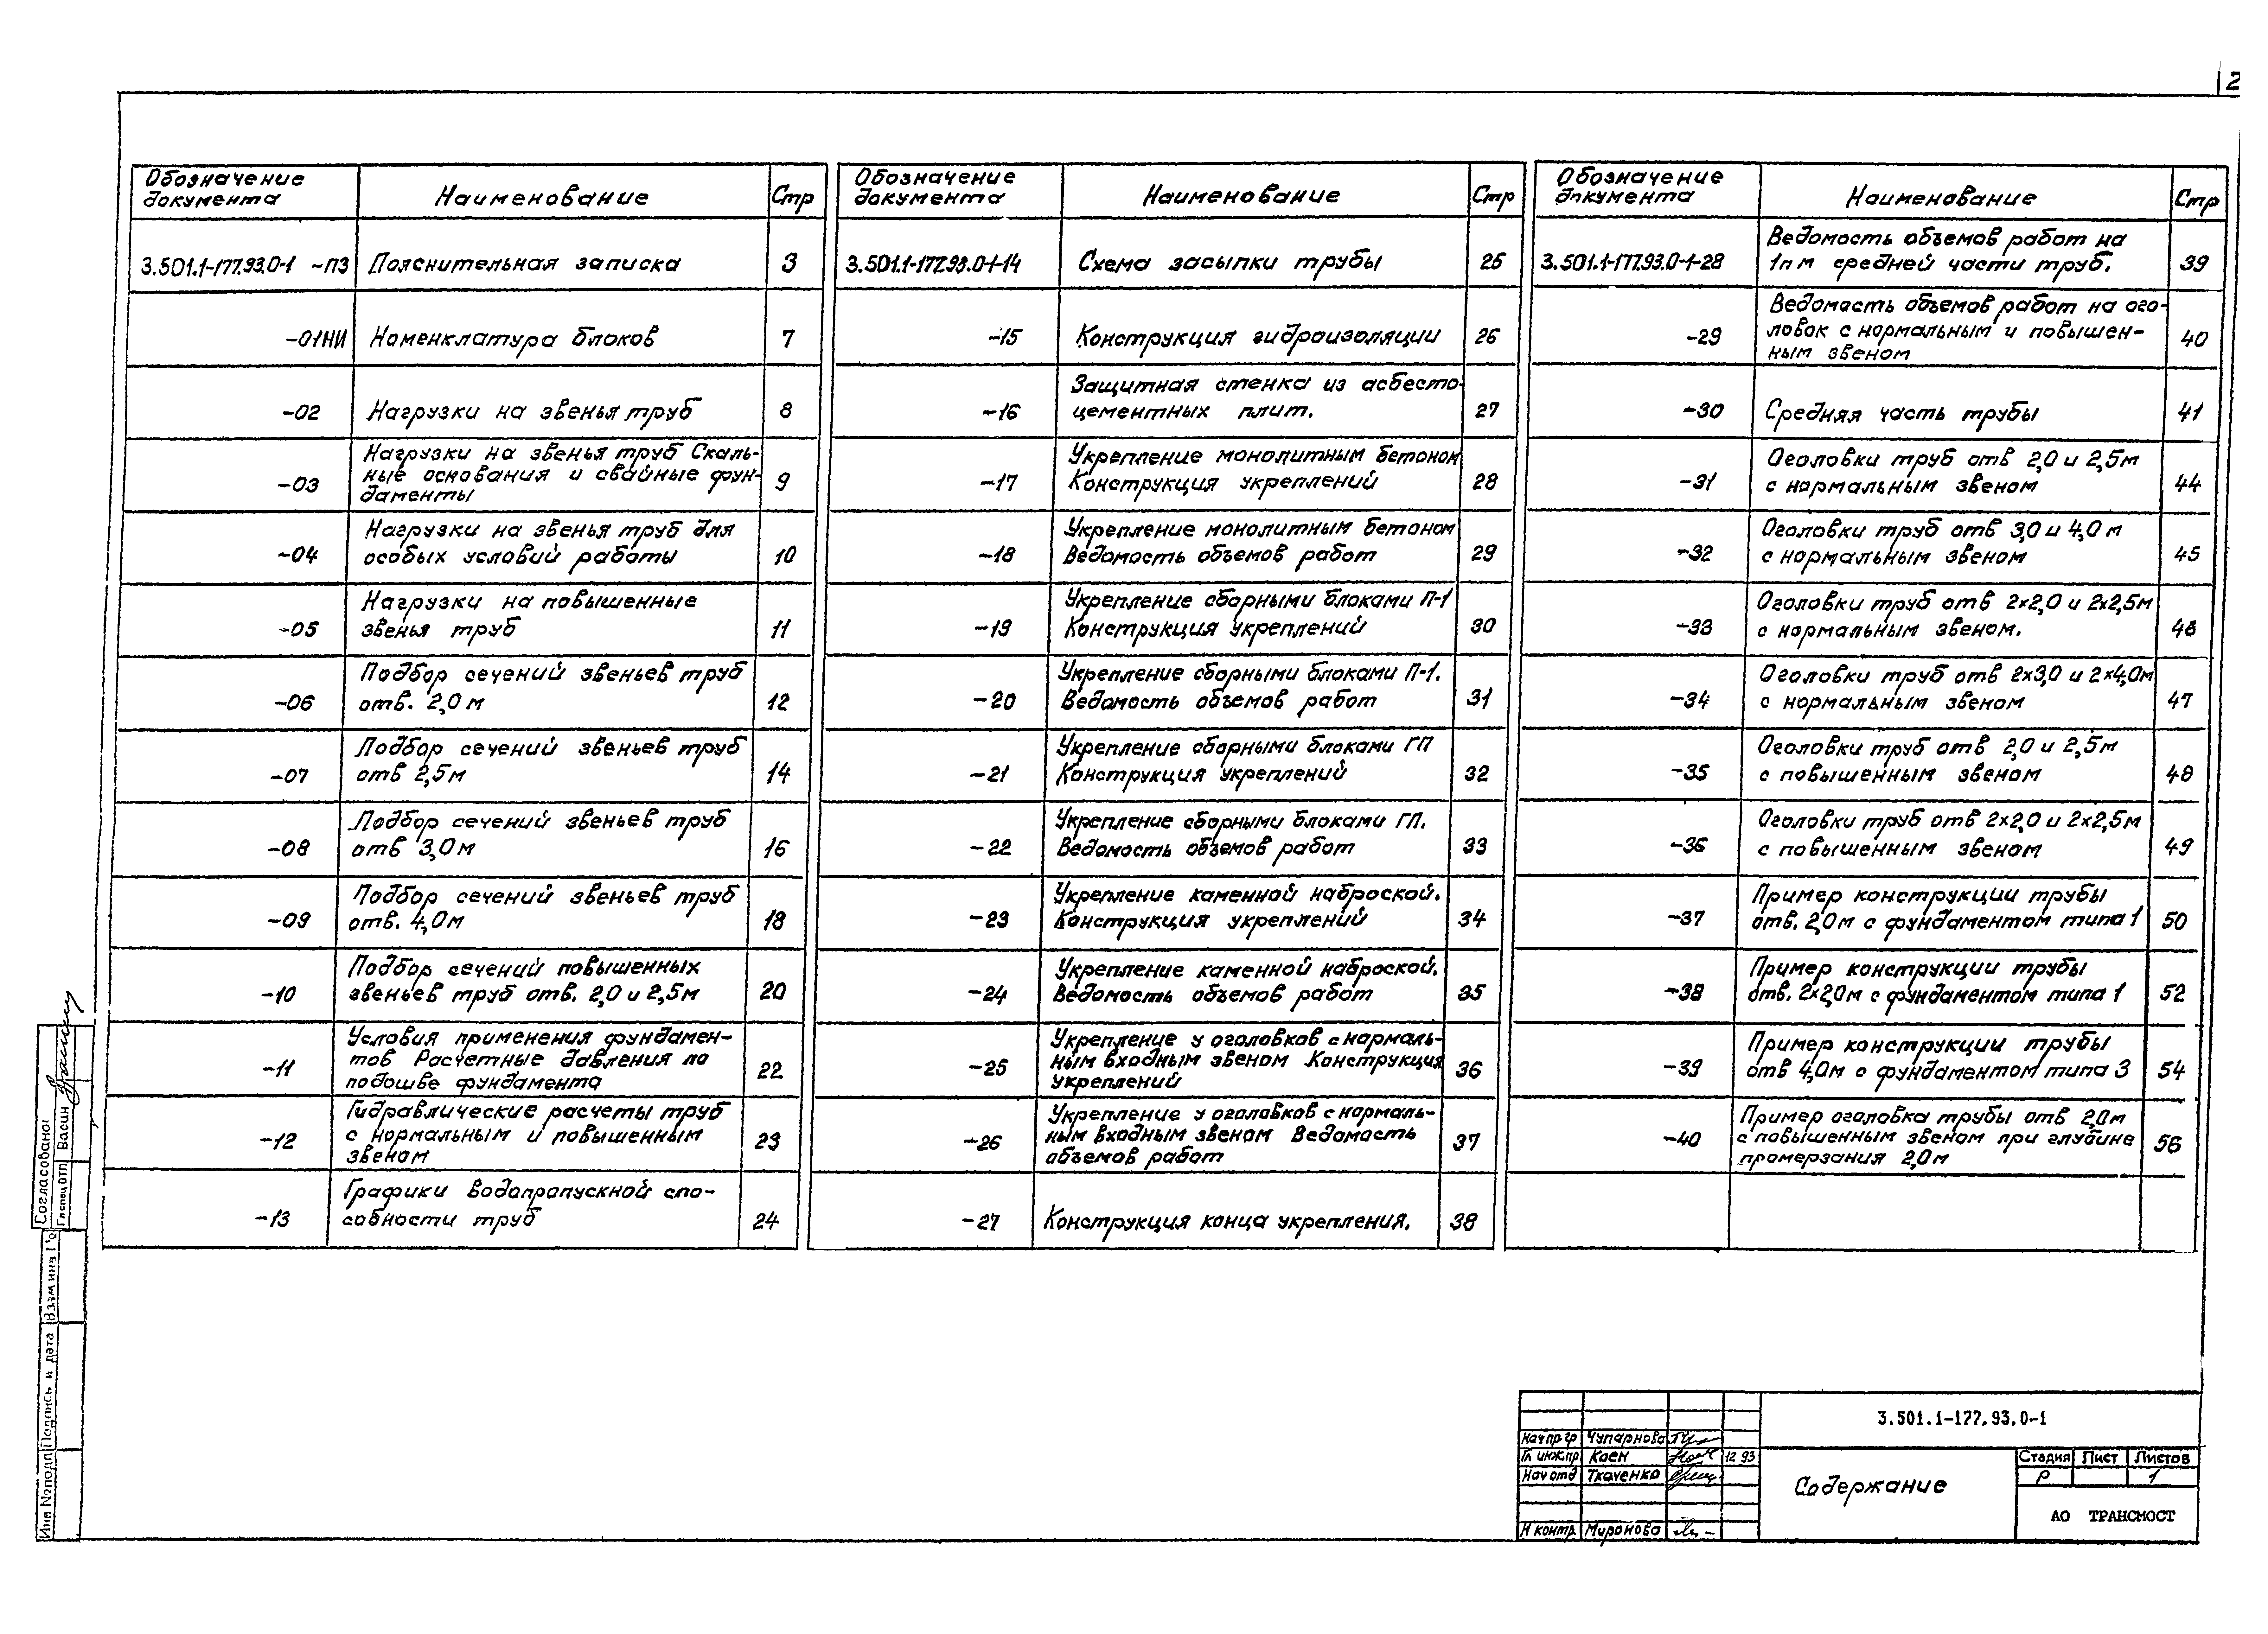 2
Обозначение документа Наименование Стр
3.501.1-177.93.0-1 -ПЗ Пояснительная записка 3
-01НИ Номенклатура блоков 7
-02 Нагрузки на звенья труб 8
-03 Нагрузки на звенья труб Скаль-
ные основания и свайные фун-
даменты 9
-04 Нагрузки на звенья труб для
особых условий работы 10
-05 Нагрузки на повышенные
звенья труб 11
-06 Подбор сечений звеньев труб
отв. 2,0 м 12
-07 Подбор сечений звеньев труб
отв 2,5м 14
-08 Подбор сечений звеньев труб
отв 3,0м 16
-09 Подбор сечений звеньев труб
отв. 4,0м 18
-10 Подбор сечений повышенных
звеньев труб отв. 2,0 и 2,5м 20
-11 Условия применения фундамен-
тов Расчетные давления по
подошве фундамента 22
-12 Гидравлические расчеты труб
с нормальным и повышенным
звеном 23
-13 Графики водопропускной спо-
собности труб 24
Обозначение документа Наименование Стр
3.501.1-177.93.0-1-14 Схема засыпки трубы 25
-15 Конструкция гидроизоляции 26
-16 Защитная стенка из асбесто-
цементных плит. 27
-17 Укрепление монолитным бетоном
Конструкция укреплений 28
-18 Укрепление монолитным бетоном
Ведомость объемов работ 29
-19 Укрепление сборными блоками П-1
Конструкция укреплений 30
-20 Укрепление сборными блоками П-1.
Ведомость объемов работ 31
-21 Укрепление сборными блоками ГП
Конструкция укреплений 32
-22 Укрепление сборными блоками ГП.
Ведомость объемов работ 33
-23 Укрепление каменной наброской.
Конструкция укреплений 34
-24 Укрепление каменной наброской.
Ведомость объемов работ 35
-25 Укрепление у оголовков с нормаль-
ным входным звеном Конструкция
укреплений 36
-26 Укрепление у оголовков с нормаль-
ным входным звеном Ведомость
объемов работ 37
-27 Конструкция конца укрепления. 38
Обозначение документа Наименование Стр
3.501.1-177.93.0-1-28 Ведомость объемов работ на
1п м средней части труб. 39
-29 Ведомость объемов работ на ого-
ловок с нормальным и повышен-
ным звеном 40
-30 Средняя часть трубы 41
-31 Оголовки труб отв 2,0 и 2,5м
с нормальным звеном 44
-32 Оголовки труб отв 3,0 и 4,0 м
с нормальным звеном 45
-33 Оголовки труб отв 2×2,0 и 2×2,5м
с нормальным звеном. 46
-34 Оголовки труб отв 2×3,0 и 2×4,0м
с нормальным звеном 47
-35 Оголовки труб отв 2,0 и 2,5м
с повышенным звеном 48
-36 Оголовки труб отв 2×2,0 и 2×2,5м
с повышенным звеном 49
-37 Пример конструкции трубы
отв. 2,0м с фундаментом типа 1 50
-38 Пример конструкции трубы
отв. 2×2,0м с фундаментом типа 1 52
-39 Пример конструкции трубы
отв 4,0м с фундаментом типа 3 54
-40 Пример оголовка трубы отв 2,0м
с повышенным звеном при глубине
промерзания 2,0м 56
Согласовано:
Гл спец ОТП Васин
Взам инв
Подпись и дата
Инв №подл
Нач пр гр Чупарнова
Гл инж.пр Коен 12 93
Нач отд Ткаченко
Н контр Миронова
3.501.1-177.93.0-1
Содержание
Стадия Лист Листов
Р 1
АО ТРАНСМОСТ